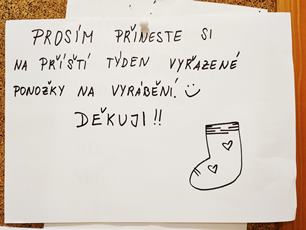 PROSÍM PŘINESTE SI
NA PŘÍŠTÍ TÝDEN VYŘAZENÉ
PONOŽKY NA VYRÁBĚNÍ.
DĚKUJI!!